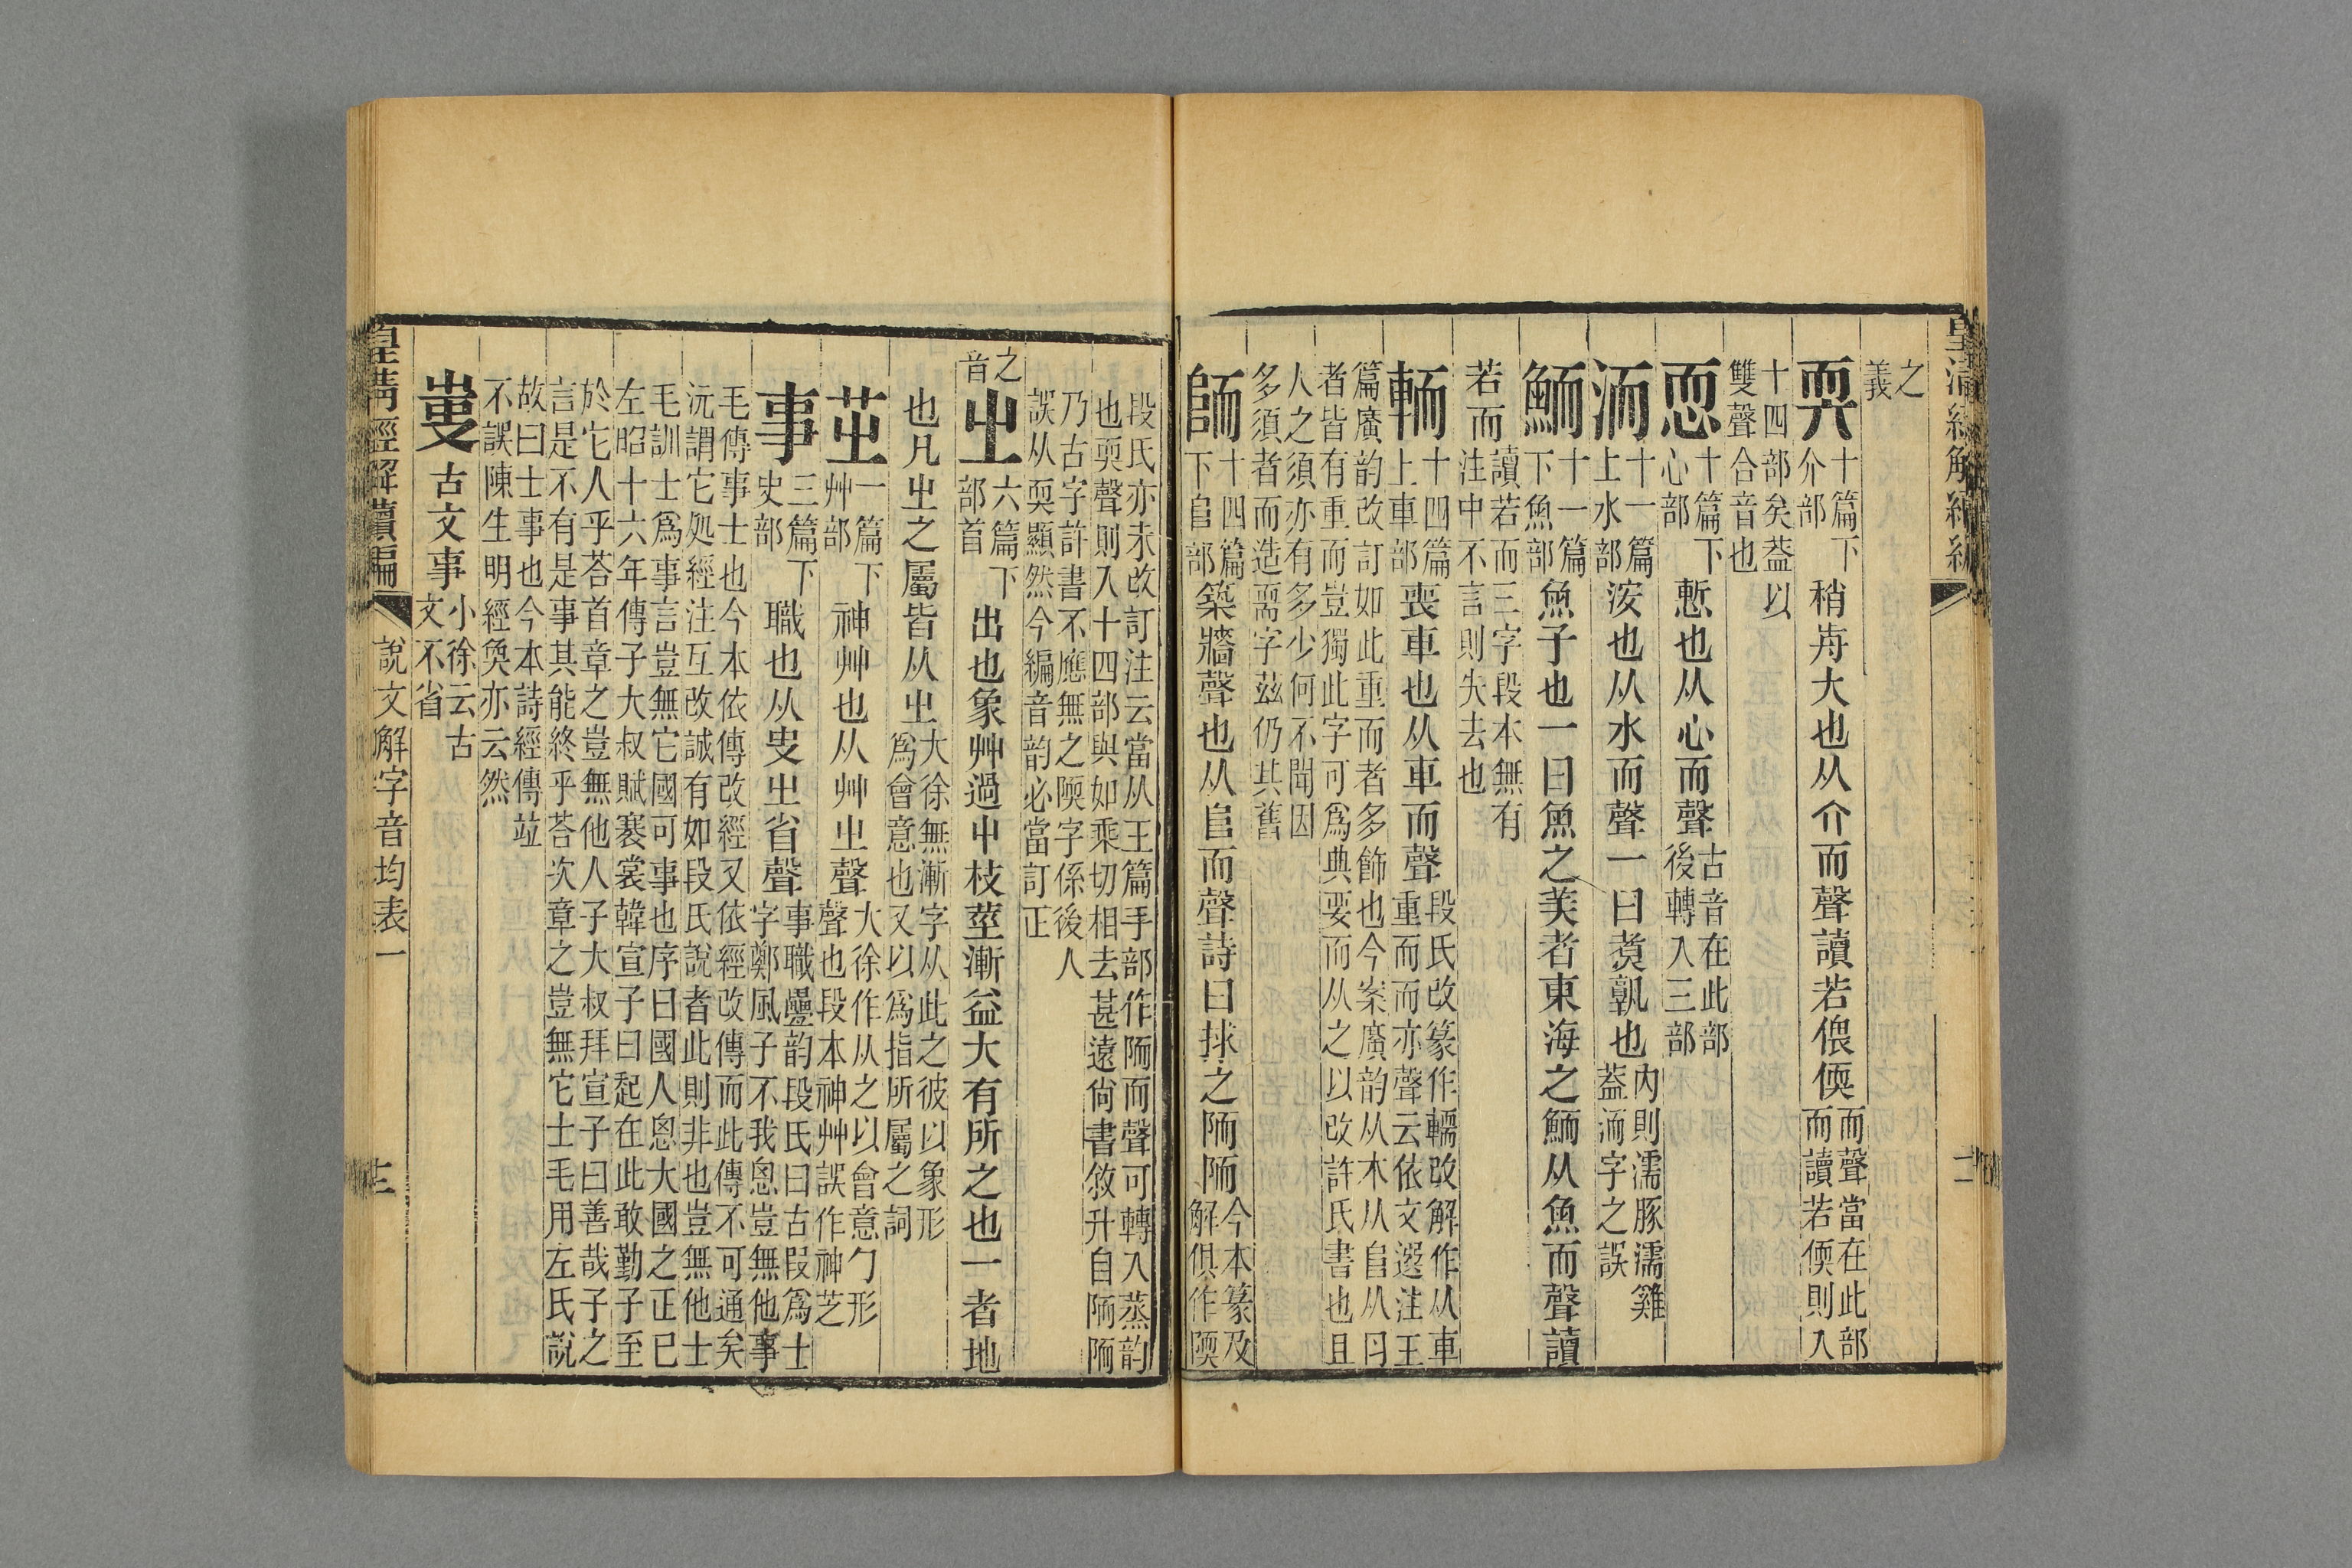 之
義
耎十篇下
介部
稍歬大也从介而聲讀若偄偄而聲當在此部
而讀若偄則入
十四部矣葢以
雙聲合音也
恧十篇下
心部
慙也从心而聲古音在此部
後轉入三部
洏十一篇
上水部
洝也从水而聲一曰䰞孰也內則濡豚濡雞
葢洏字之誤
鮞十一篇
下魚部
魚子也一曰魚之美者東海之鮞从魚而聲讀
若而讀若而三字段本無有
注中不言則失去也
輀十四篇
上車部
喪車也从車而聲段氏改篆作轜改解作从車
重而而亦聲云依文選注王
篇廣韵改訂如此重而者多飾也今案廣韵从木从自从冃
者皆有重而豈獨此字可爲典要而从之以改許氏書也且
人之須亦有多少何不聞因
多須者而造需字茲仍其舊
陑十四篇
下𨸏部
築牆聲也从𨸏而聲詩曰捄之陑陑今本篆及
解俱作陾
段氏亦未改訂注云當从王篇手部作陑而聲可轉入蒸韵
也耎聲則入十四部與如乘切相去甚遠尙書敘升自陑陑
乃古字許書不應無之陾字係後人
誤从耎顯然今編音韵必當訂正
之
音
㞢六篇下
部首
出也象艸過屮枝莖漸益大有所之也一者地
也凡㞢之屬皆从㞢大徐無漸字从此之彼以象形
爲會意也又以爲指所屬之詞
芷一篇下
艸部
神艸也从艸㞢聲大徐作从之以會意勹形
聲也段本神艸誤作神芝
事三篇下
史部
職也从叓㞢省聲事職疊韵段氏曰古叚爲士
字鄭風子不我恖豈無他事
毛傳事士也今本依傳改經又依經改傳而此傳不可通矣
沅謂它処經注互改誠有如段氏說者此則非也豈無他士
毛訓士爲事言豈無它國可事也序曰國人恖大國之正巳
左昭十六年傳子大叔賦褰裳韓宣子曰起在此敢勤子至
於它人乎荅首章之豈無他人子大叔拜宣子曰善哉子之
言是不有是事其能終乎荅次章之豈無它士毛用左氏說
故曰士事也今本詩經傳竝
不誤陳生明經奐亦云然
𠭏古文事小徐云古
文不省
皇淸經解續編
說文解字音均表一